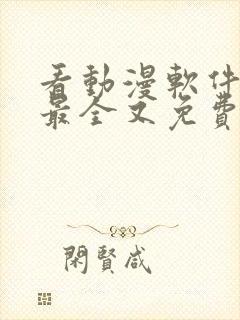 看動漫軟件
最全又免費
閑賢咸